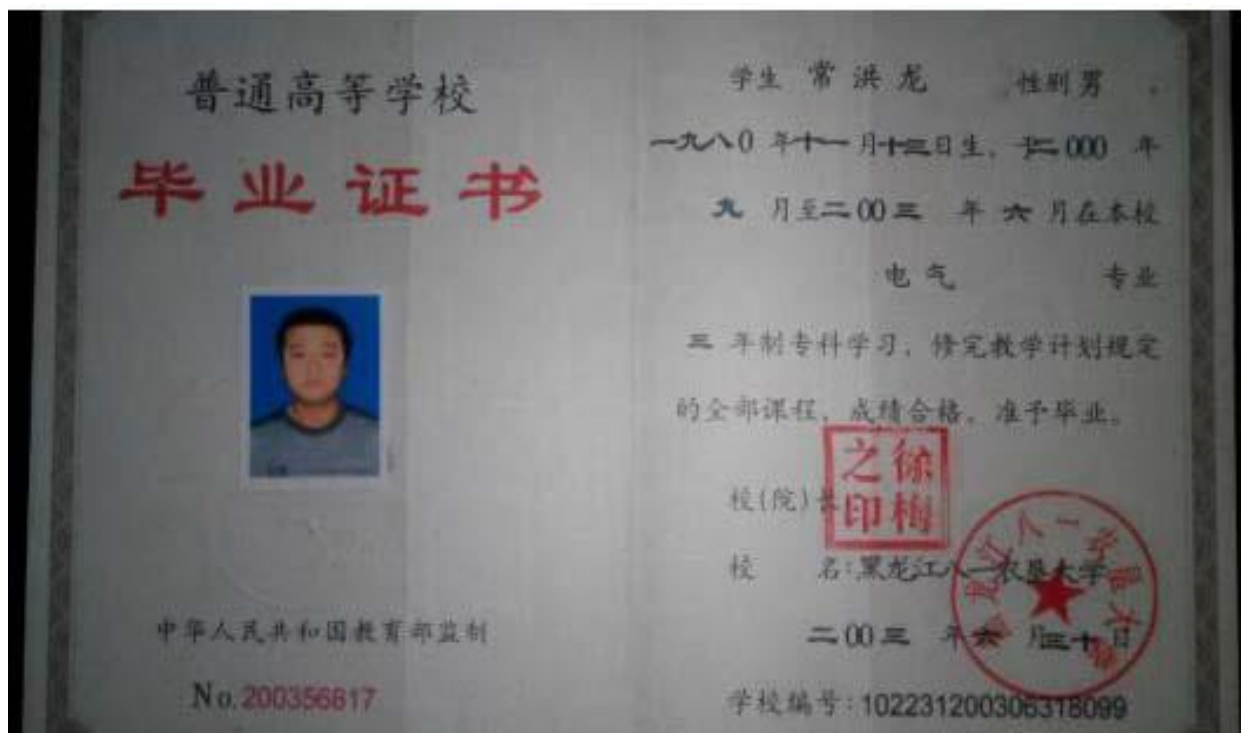 普通高等学校
毕业证书
中华人民共和国教育部监制
No.200356817
学生 常洪龙 性别男 ,
一九八0 年十一月十三日生, 于二000 年
九 月至二00三 年 六 月在本校
电气 专业
三 年制专科学习, 修完教学计划规定
的全部课程, 成绩合格, 准予毕业。
校(院)长
徐梅之印
校 名:黑龙江八一农垦大学
黑龙江八一农垦大学
二00三 年六 月三十日
学校编号:102231200306318099